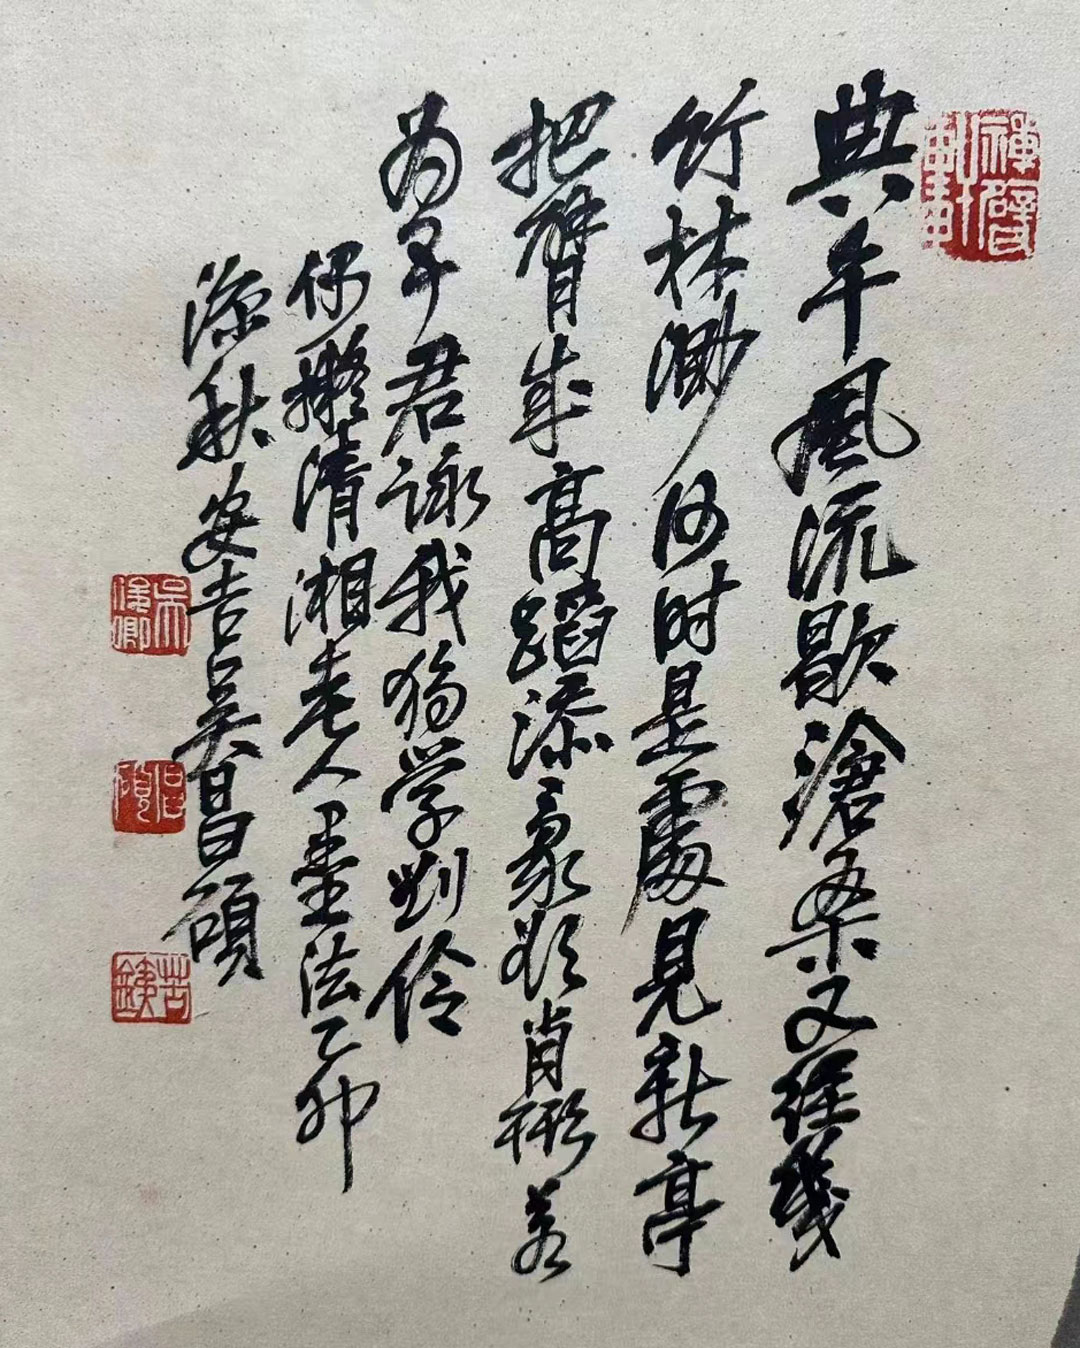 典午風流歇滄桑又經幾
竹林渺何時是處見新亭
把臂成高蹈添豪欲肖形若
為五君詠我獨學劉伶
偶擬清湘老人墨法乙卯
深秋安吉吳昌碩
禪甓軒
吳俊卿
昌碩
苦鐵